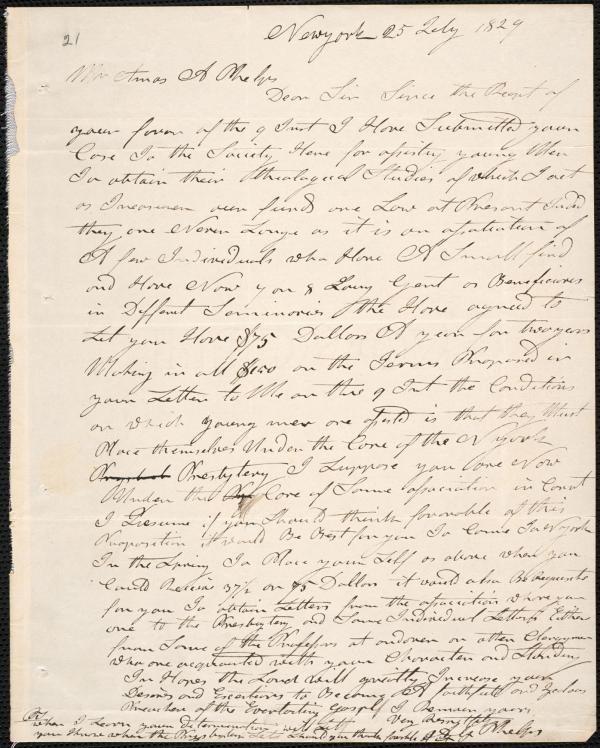 21
Newyork 25 July 1829
Mr Amos A Phelps
Dear Sir Since the Receipt of
your favor of the 9 Inst I Have Submitted your
Case To the Society Here for assisting young Men
To obtain their theological Studies of which I act
as Treasurer our funds are Low at Present Indeed
they are Never Large as it is an assotiation of
A few Individuals who Have A Small fund
and Have Now 7 or 8 Young Gent as Beneficiares
in Different Seminaries the Have agreed to
Let you Have $75 Dollars A year for two years
Making in all $150 on the Terms Proposed in
your Letter to Me on the 9 Int the Conditions
on which young men are assisted is that they Must
Place themselves Under the Care of the N york
Presbytery I Suppose you are Now
Under the Care of Some assotiation in Conct
I Presume if you Should think favorable of this
Proposition it would Be Best for you To Come To N York
In the Spring To Place your Self as above when you
Could Receive 37½ or 75 Dollars it would also Be Requisite
for you To obtain Letters from the assotiation where you
are to the Presbytery and Some Individual Letters Either
from Some of the Professors at andover or other Clergymen
who are acquainted with your Character and Standing
In Hopes the Lord will greatly Increase your
Desires and Exertions to Become A faithfull and Zealous
Preacher of the Everlasting Gospel I Remain yours
Very Respectfully
when I Learn your determination will Let
you Know when the Presbytery Should you think favorable
Phelps